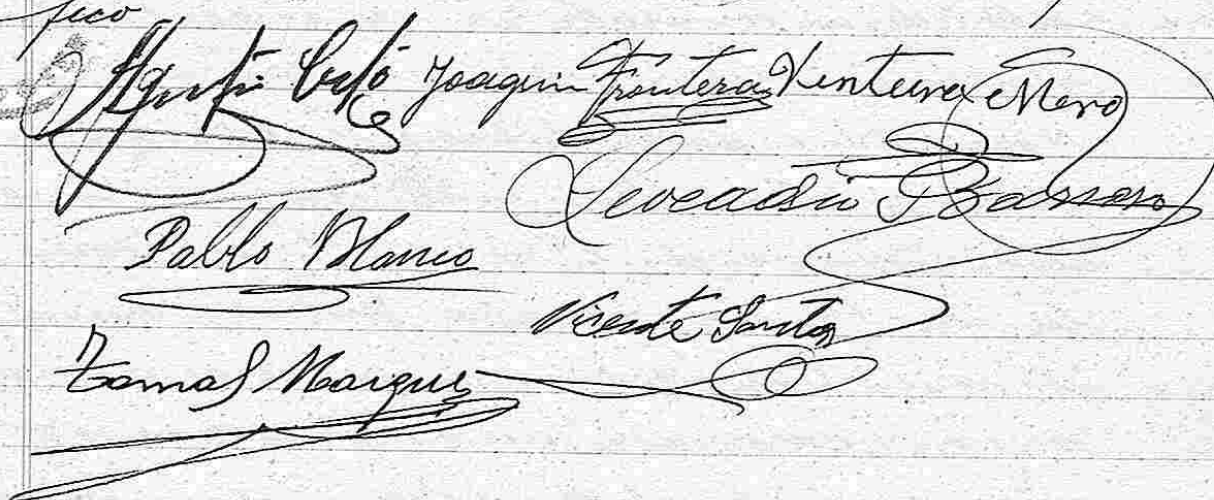 fico
Agustí Joaquin Frontera Ventura Moro
Leocadio Barrero
Pablo Blanco
Vicente Santos
Tomas Marques